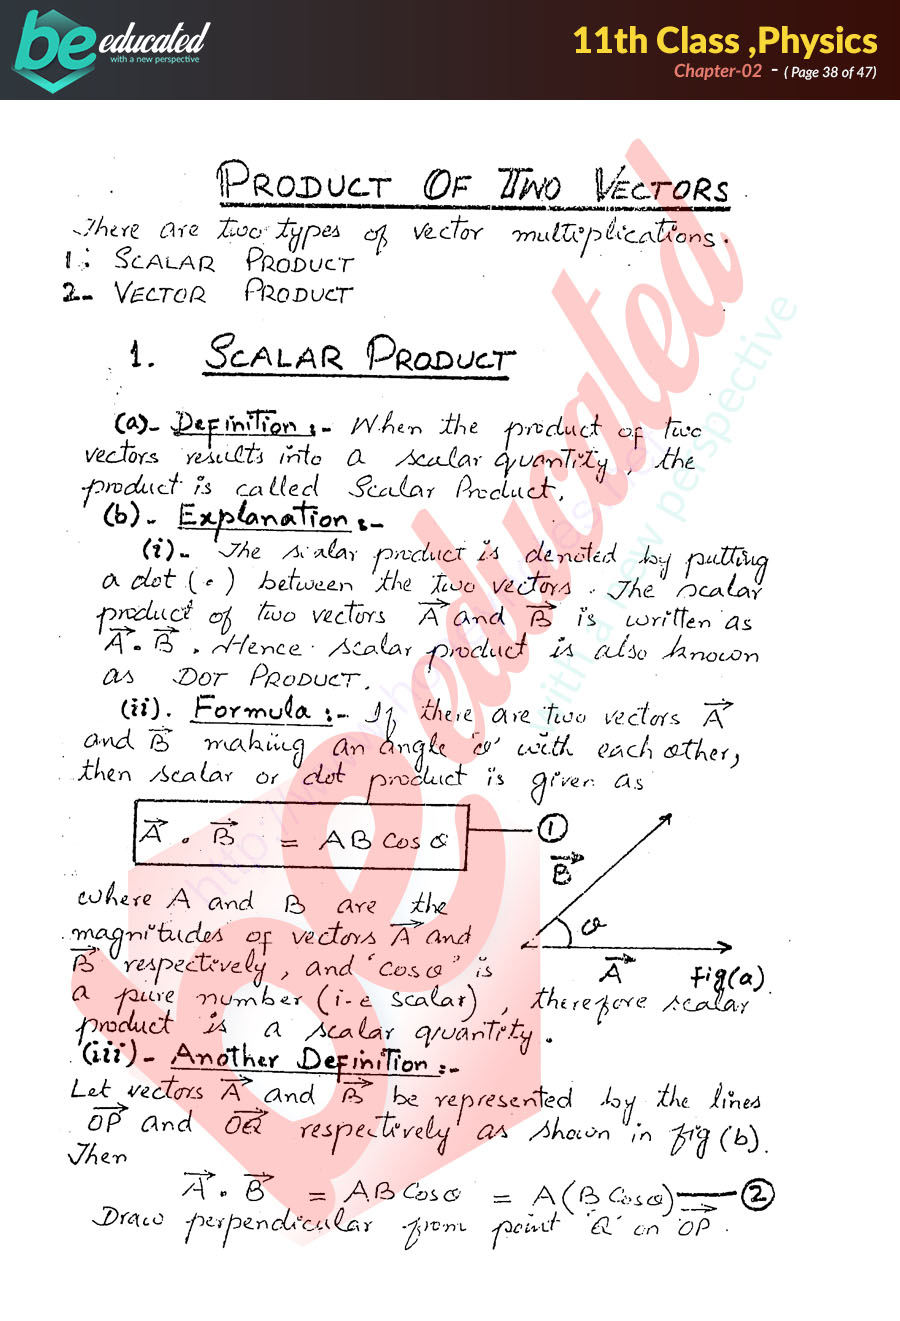 be educated
with a new perspective
11th Class ,Physics
Chapter-02 - ( Page 38 of 47)
PRODUCT OF TWO VECTORS
There are two types of vector multiplications.
1: SCALAR PRODUCT
2- VECTOR PRODUCT
1. SCALAR PRODUCT
(a)- Definition :- When the product of two
vectors results into a scalar quantity, the
product is called Scalar Product.
(b)- Explanation :-
(i)- The scalar product is denoted by putting
a dot (•) between the two vectors. The scalar
product of two vectors A⃗ and B⃗ is written as
A⃗ • B⃗ . Hence scalar product is also known
as DOT PRODUCT.
(ii). Formula :- If there are two vectors A⃗
and B⃗ making an angle 'θ' with each other,
then scalar or dot product is given as
A⃗ . B⃗ = AB Cos θ ①
B⃗
θ
A⃗ fig(a)
where A and B are the
magnitudes of vectors A⃗ and
B⃗ respectively, and 'cosθ' is
a pure number (i-e scalar), therefore scalar
product is a scalar quantity.
(iii)- Another Definition :-
Let vectors A⃗ and B⃗ be represented by the lines
OP⃗ and OQ⃗ respectively as shown in fig (b).
Then
A⃗ . B⃗ = AB Cosθ = A(B Cosθ) ②
Draw perpendicular from point 'Q' on OP⃗ .
be educated
with a new perspective